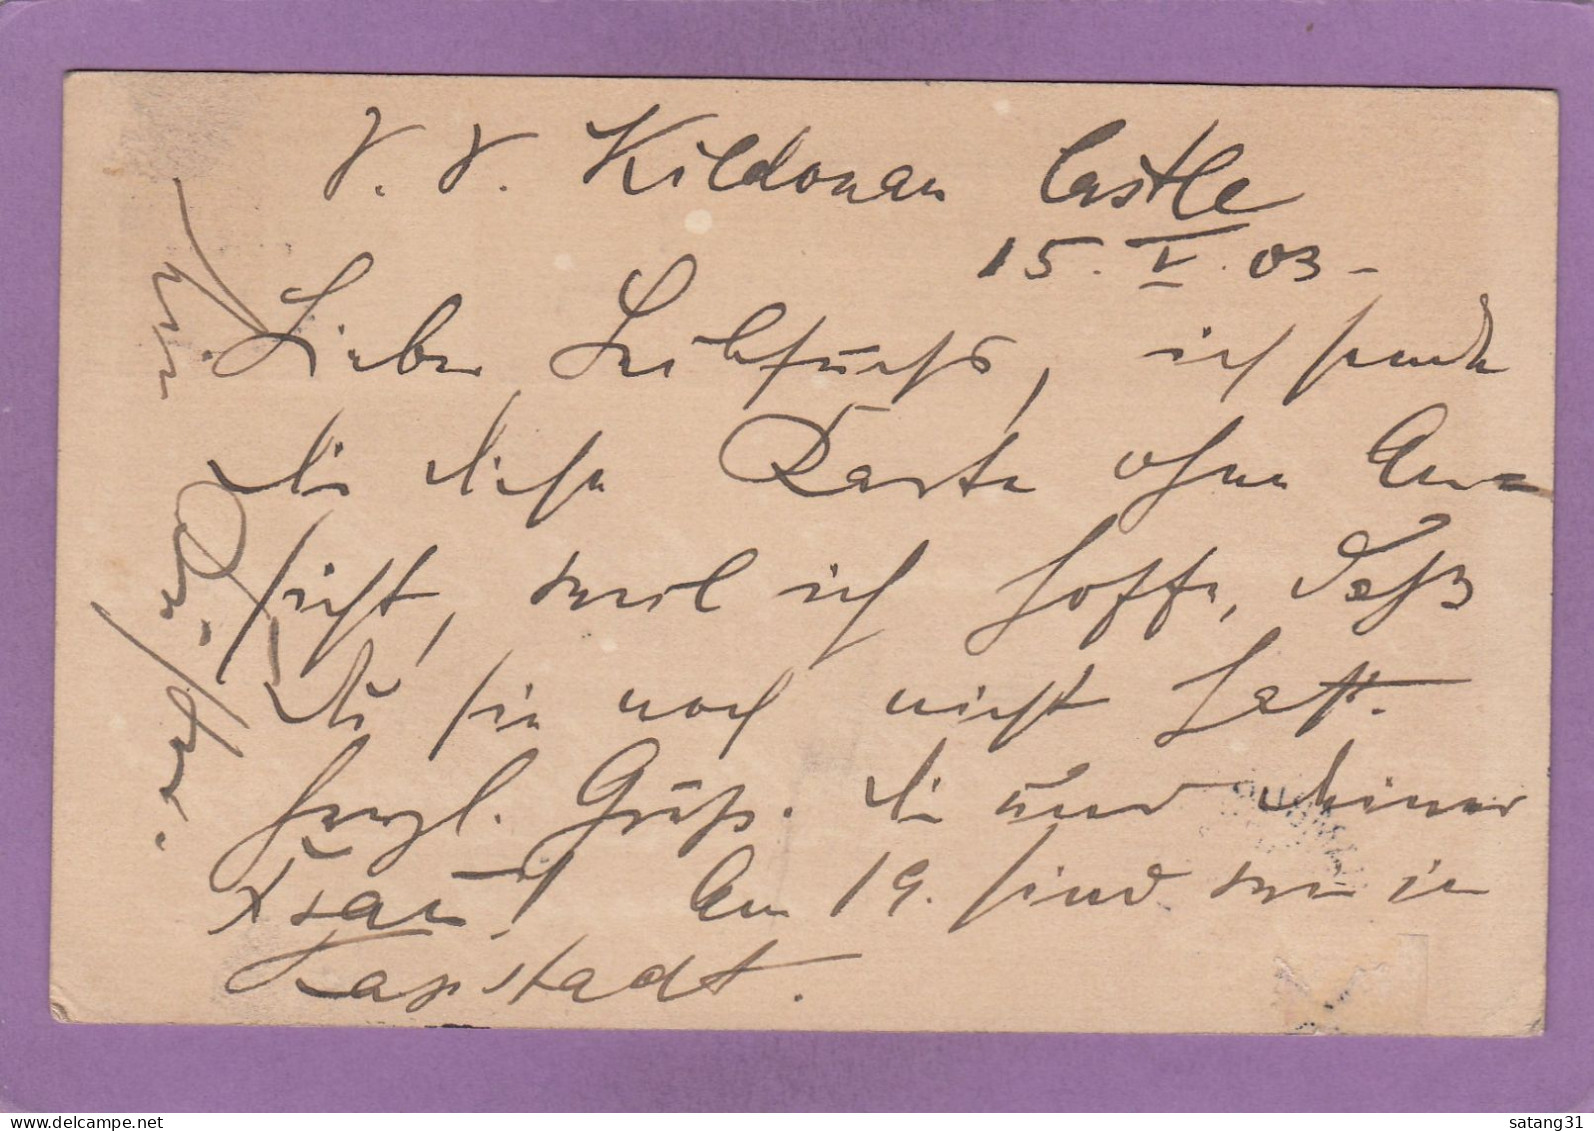 S. S. Kildonan Castle
15. V. 03 -
Lieber Leibfuchs, ich sende
dir diese Karte ohne An=
sicht, weil ich hoffe, daß
du sie noch nicht hast.
Herzl. Grüße. dir und deiner
Frau! Am 19. sind wir in
Kapstadt.
satang31